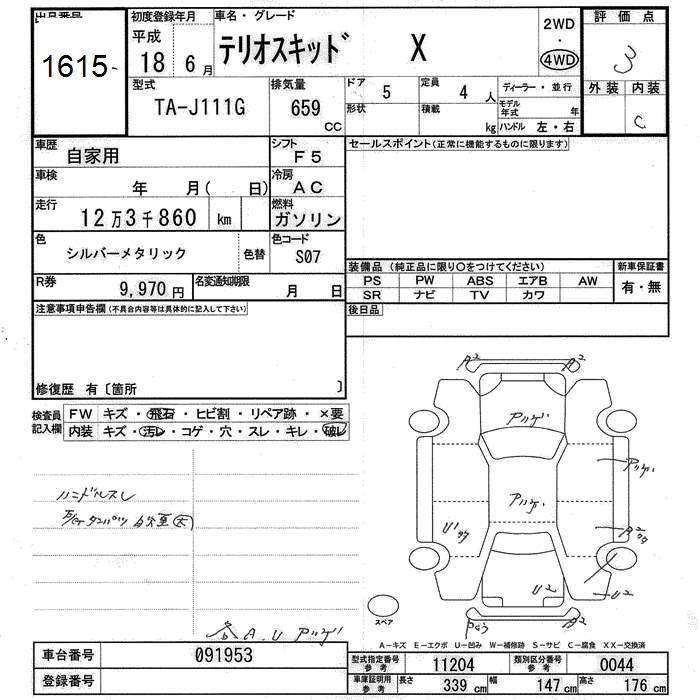 出品番号 初度登録年月 車名・グレード 2WD 評価点
1615 平成 18 6月 テリオスキッド X ・ 4WD 3
型式 TA-J111G 排気量 659 CC ドア 5 定員 4 人 ディーラー・並行 外装 内装
形状 積載 kg モデル年式 年 ハンドル 左・右 C
車歴 自家用 シフト F5 セールスポイント(正常に機能するものに限ります)
車検 年 月( 日) 冷房 AC
走行 12万3千860 km 燃料 ガソリン
色 シルバーメタリック 色替 色コード S07
装備品 (純正品に限り○をつけてください) 新車保証書
R券 9,970円 名変通知期限 月 日 PS PW ABS エアB AW 有・無
SR ナビ TV カワ
注意事項申告欄(不具合内容等は具体的に記入して下さい) 後日品
修復歴 有〔箇所 〕
検査員記入欄 FW キズ・飛石・ヒビ割・リペア跡・×要
内装 キズ・汚レ・コゲ・穴・スレ・キレ・破レ
A2 A2
アッゲ
アッゲ
アッゲ
ハンドルスレ
U1
A2
U2 U2
A2
A.U アッゲ
スペア
A-キズ E-エクボ U-凹み W-補修跡 S-サビ C-腐食 XX-交換済
車台番号 091953 型式指定番号 参考 11204 類別区分番号 参考 0044
登録番号 車庫証明用 参考 長さ 339cm 幅 147cm 高さ 176cm